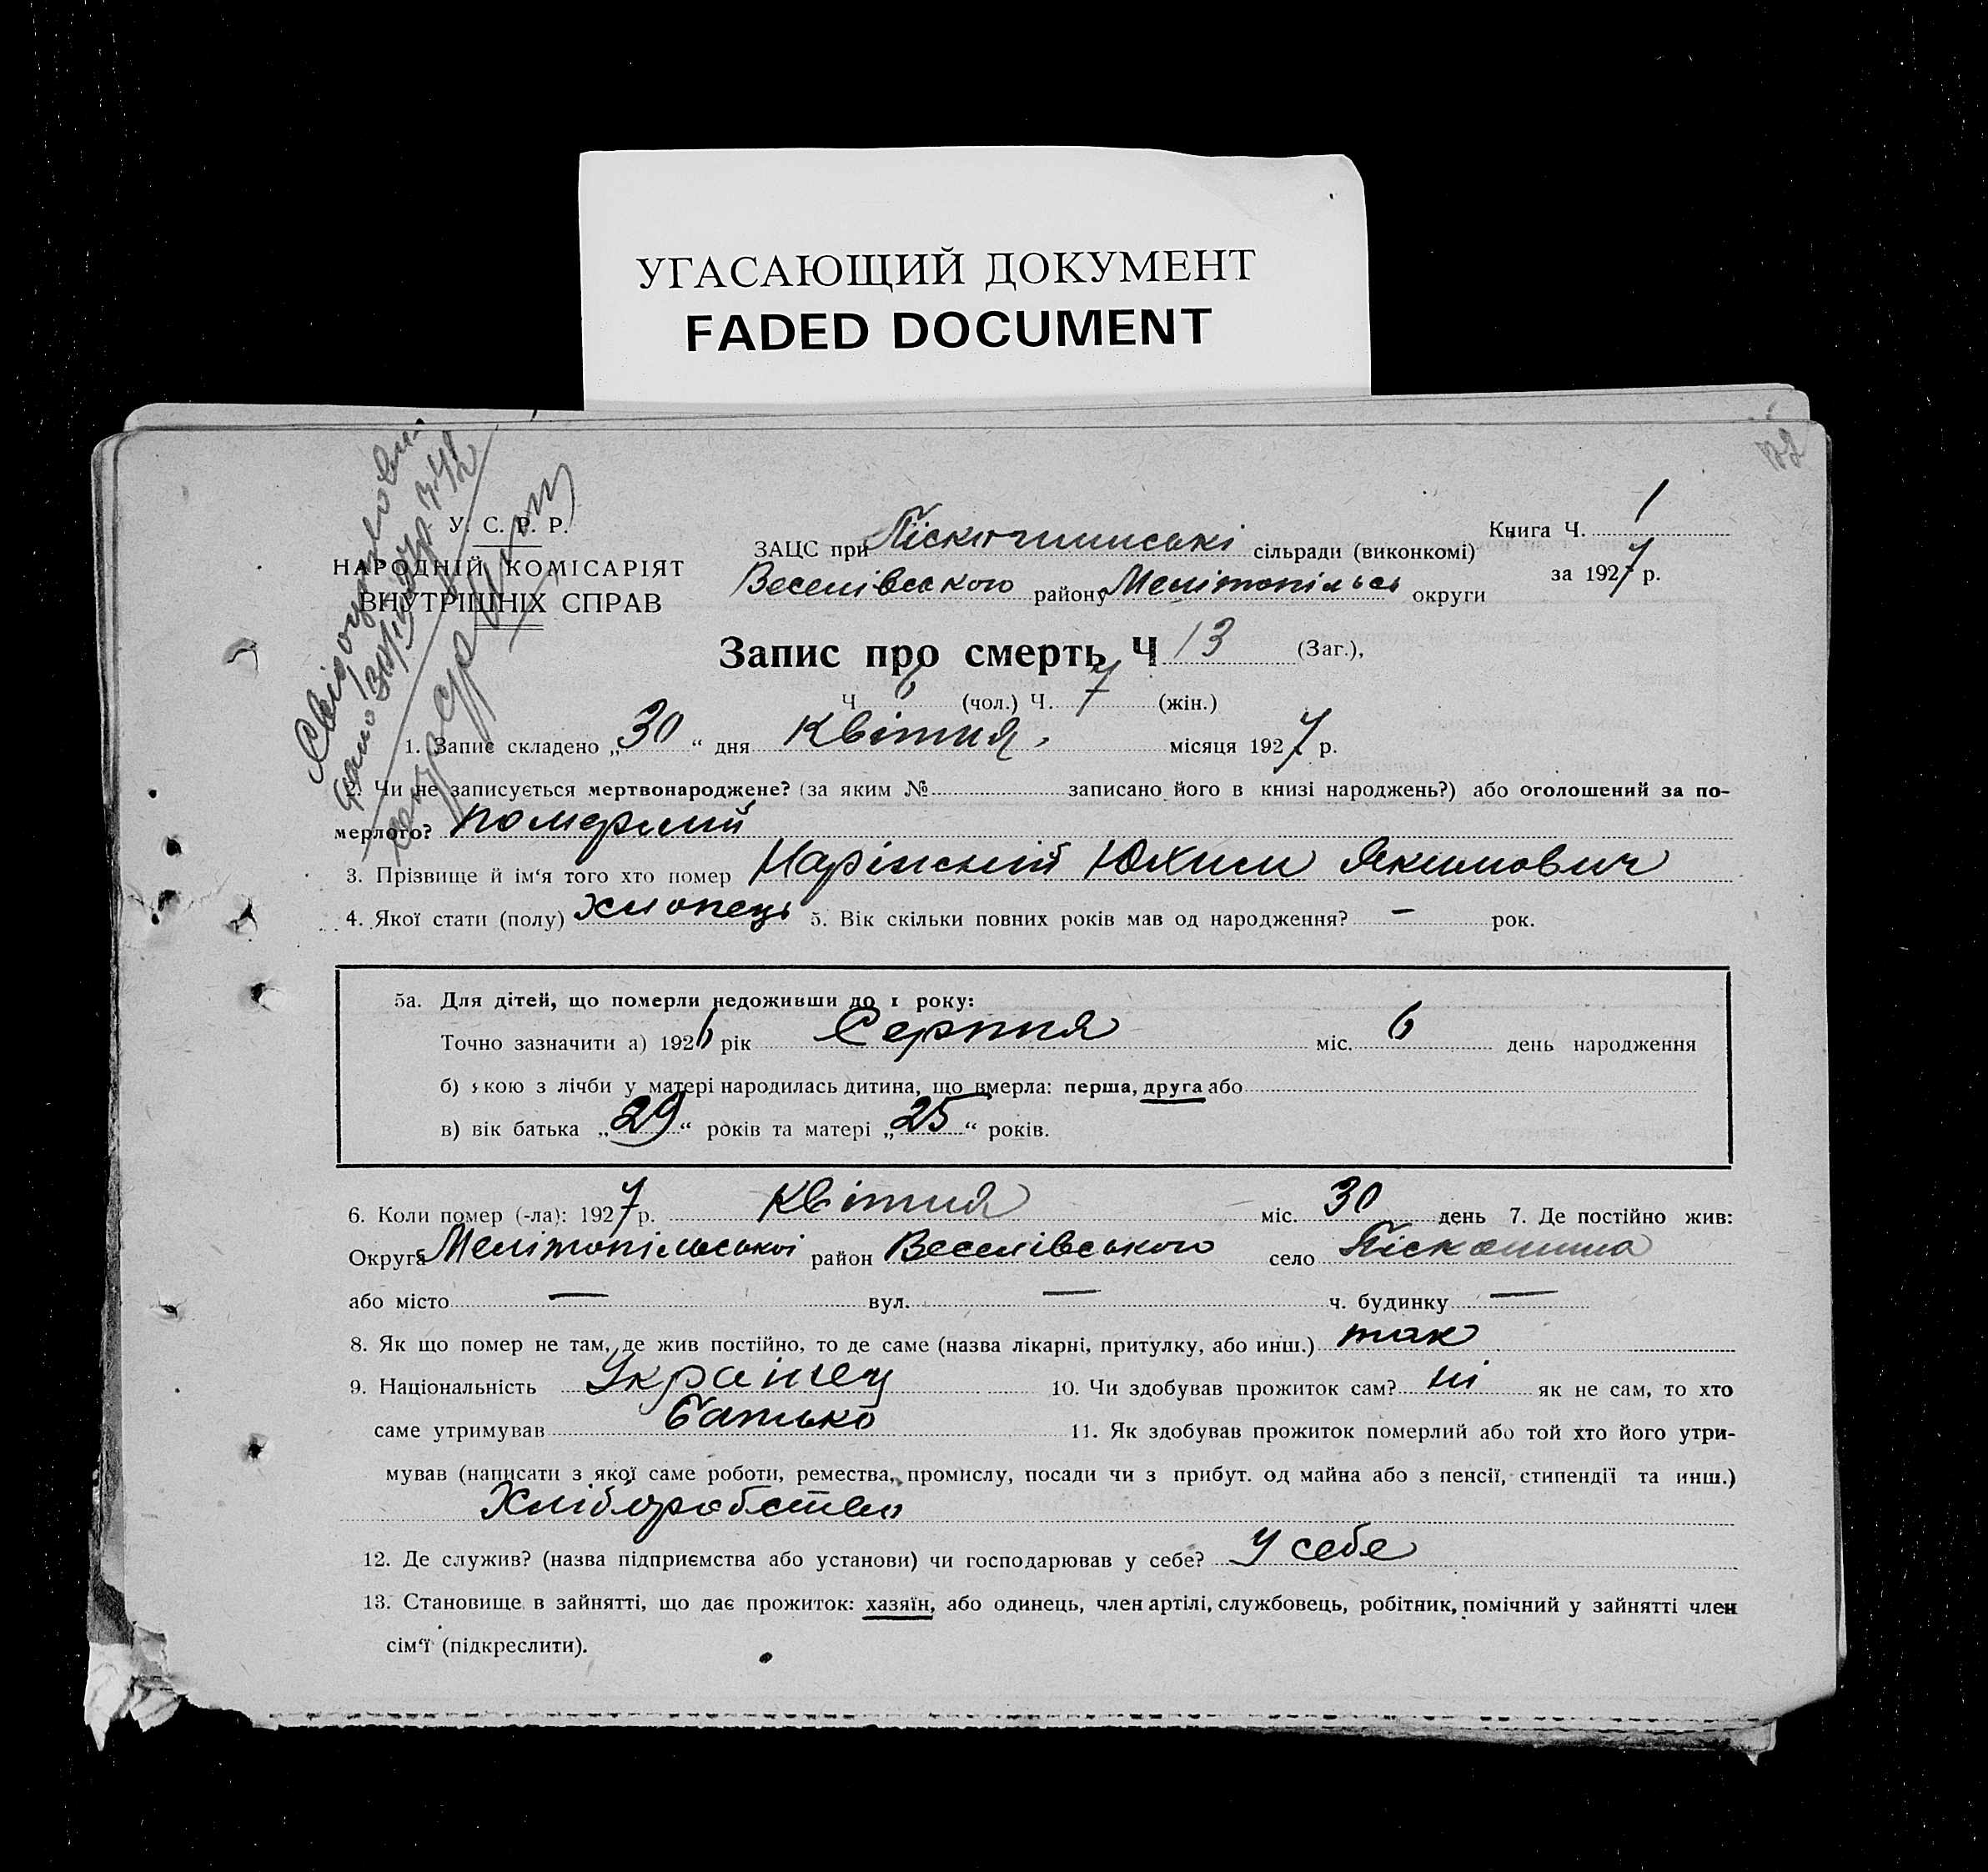 УГАСАЮЩИЙ ДОКУМЕНТ
FADED DOCUMENT
У. С. Р. Р.
НАРОДНІЙ КОМІСАРІЯТ
ВНУТРІШНІХ СПРАВ
ЗАЦС при сільради (виконкомі)
Веселівського району Мелітопільсь округи
Книга Ч. 1
за 1927 р.
Запис про смерть Ч 13 (Заг.),
Ч 6 (чол.) Ч. 7 (жін.)
1. Запис складено „30“ дня Квітня місяця 1927 р.
2. Чи не записується мертвонароджене? (за яким № записано його в книзі народжень?) або оголошений за по-
мерлого? померлий
3. Прізвище й ім‘я того хто помер Нарінський Юхим Якимович
4. Якої стати (полу) Хлопець 5. Вік скільки повних років мав од народження? — рок.
5а. Для дітей, що померли недоживши до 1 року:
Точно зазначити а) 1926 рік Серпня міс. 6 день народження
б) якою з лічби у матері народилась дитина, що вмерла: перша, друга або
в) вік батька „29“ років та матері „25“ років.
6. Коли помер (-ла): 1927 р. Квітня міс. 30 день 7. Де постійно жив:
Округа Мелітопільської район Веселівського село Піскошина
або місто — вул. — ч. будинку —
8. Як що помер не там, де жив постійно, то де саме (назва лікарні, притулку, або инш.) так
9. Національність Українец 10. Чи здобував прожиток сам? ні як не сам, то хто
саме утримував батько 11. Як здобував прожиток померлий або той хто його утри-
мував (написати з якої саме роботи, ремества, промислу, посади чи з прибут. од майна або з пенсії, стипендії та инш.)
Хліборобство
12. Де служив? (назва підприємства або установи) чи господарював у себе? У себе
13. Становище в зайнятті, що дає прожиток: хазяїн, або одинець, член артілі, службовець, робітник, помічний у зайнятті член
сім‘ї (підкреслити).